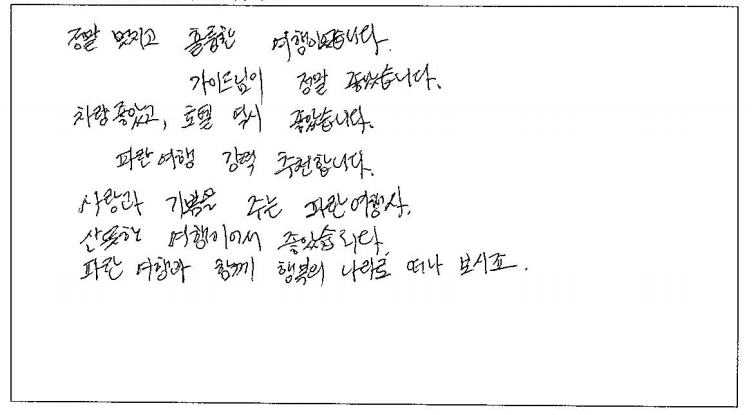 정말 멋지고 훌륭한 여행이었습니다.
가이드님이 정말 좋았습니다.
차량좋았고, 호텔 역시 좋았습니다.
파란여행 강력 추천합니다.
사랑과 기쁨을 주는 파란여행사.
여행이어서 좋았습니다.
파란 여행과 함께 행복의 나라로 떠나 보시죠.